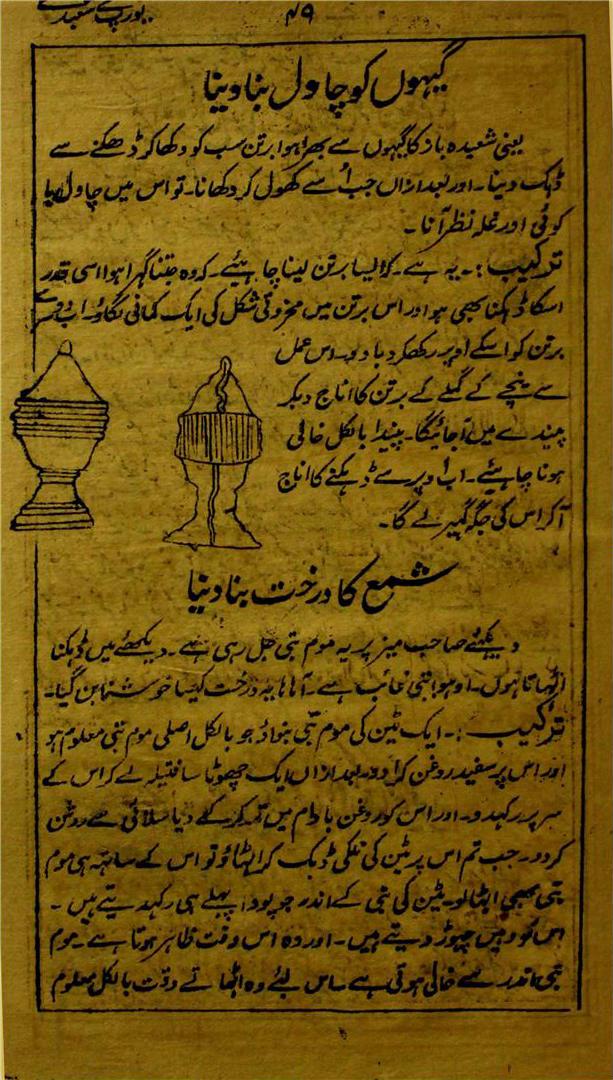 ۴۹
یورپ کے شعبدے
گیہوں کو چاول بنا دینا
یعنی شعبدہ باز کا گیہوں سے بھرا ہوا برتن سب کو دکھا کر ڈھکنے سے
ڈہک دینا۔ اور بعد ازاں جب اُسے کھول کر دکھانا۔ تو اس میں چاول یا
کوئی اور غلہ نظر آنا۔
ترکیب:۔ یہ ہے۔ کہ ایسا برتن لینا چاہیئے۔ کہ وہ جتنا گہرا ہو اسی قدر
اسکا ڈہکنا بھی ہو اور اس برتن میں مخروطی شکل کی ایک کمانی لگاؤ۔ اب دوسرے
برتن کو اسکے اوپر رکھکر دبا دو۔ اس عمل
سے نیچے کے گملے کے برتن کا اناج دیگر
پیندے میں آ جائیگا۔ پیندا بالکل خالی
ہونا چاہیئے۔ اب اوپر سے ڈہکنے کا اناج
آ کر اس کی جگہ گھیر لے گا۔
شمع کا درخت بنا دینا
دیکھئے صاحب میز پر یہ موم بتی جل رہی ہے۔ دیکھئے میں ڈہکنا
اٹھاتا ہوں۔ اوہو! بتی غائب ہے۔ آہا ہا یہ درخت کیسا خوشنما بن گیا۔
ترکیب:۔ ایک ٹین کی موم بتی بنواؤ جو بالکل اصلی موم بتی معلوم ہو
اور اس پر سفید روغن کرا دو۔ بعد ازاں ایک چھوٹا سا فتیلہ لے کر اس کے
سر پر رکھدو۔ اور اس کو روغن بادام میں تر کر کے دیا سلائی سے روشن
کر دو۔ جب تم اس پر ٹین کی نلکی ڈہک کر اٹھاؤ تو اس کے ساتھ ہی موم
بتی بھی اٹھا لو۔ ٹین کی بتی کے اندر جو پودا پہلے ہی رکھدیتے ہیں۔
اس کو وہیں چھوڑ دیتے ہیں۔ اور وہ اس وقت ظاہر ہوتا ہے۔ موم
بتی اندر سے خالی ہوتی ہے۔ اس لئے وہ اٹھاتے وقت بالکل معلوم